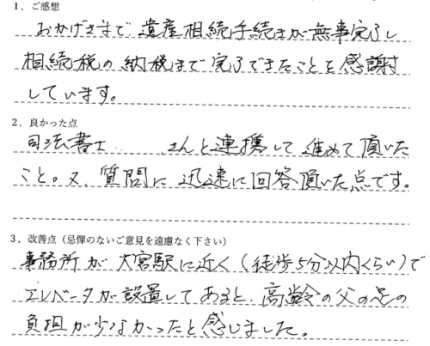 1．ご感想
おかげさまで遺産相続手続きが無事完了し
相続税の納税まで完了できたことを感謝
しています。
2．良かった点
司法書士 さんと連携して進めて頂いた
こと。又、質問に迅速に回答頂いた点です。
3．改善点（忌憚のないご意見を遠慮なく下さい）
事務所が大宮駅に近く（徒歩5分以内くらい）で
エレベータが設置してあると、高齢の父の足の
負担が少なかったと感じました。